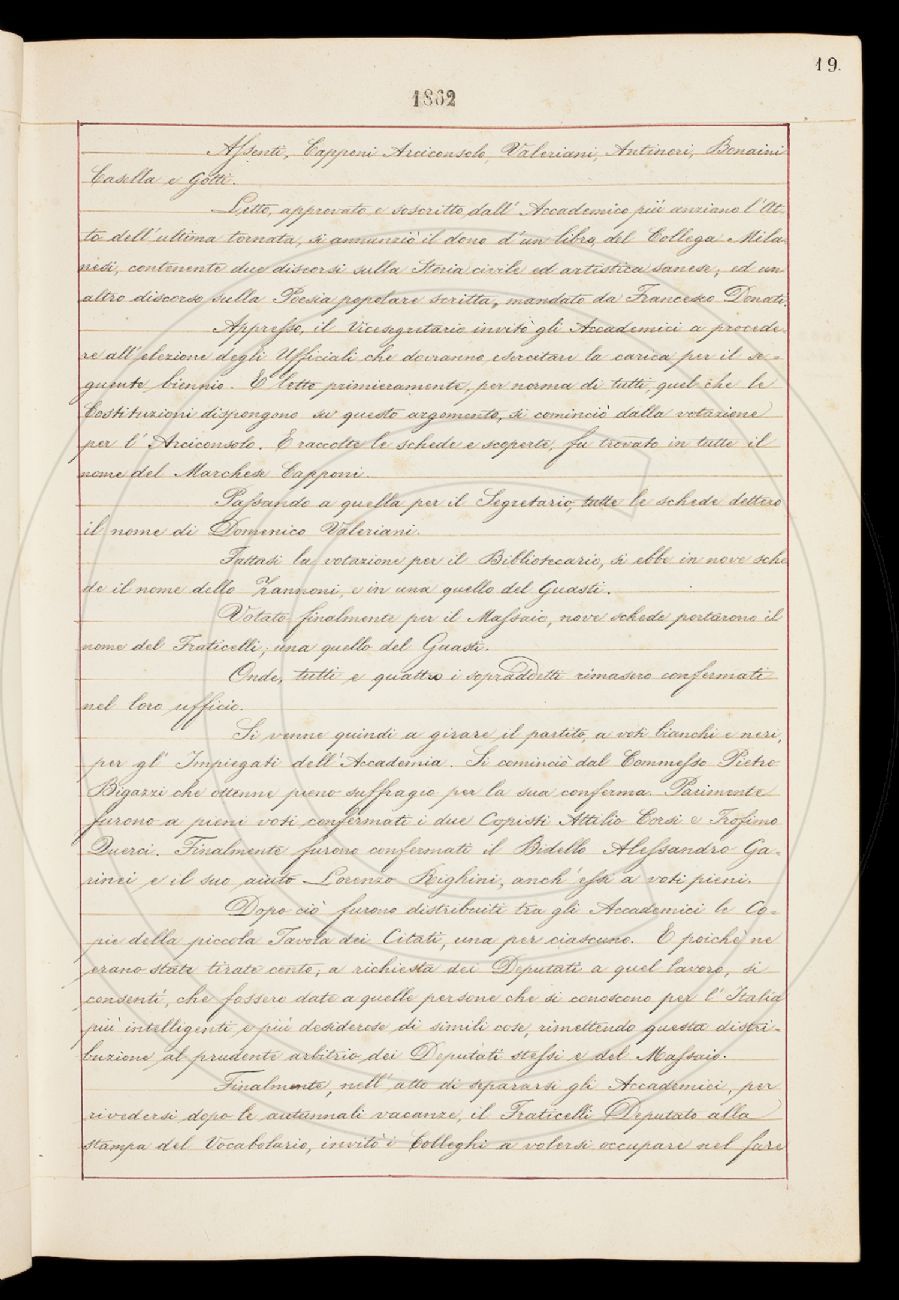 19.
1862
Assenti, Capponi Arciconsolo, Valeriani, Antinori, Bonaini
Casella e Gotti.
Letto, approvato e soscritto dall' Accademico più anziano l'At-
to dell'ultima tornata, si annunziò il dono d'un libro, del Collega Mila-
nesi, contenente due discorsi sulla Storia civile ed artistica sanese; ed un
altro discorso sulla Poesia popolare scritta, mandato da Francesco Donati.
Appresso, il Vicesegretario invitò gli Accademici a procede-
re all'elezione degli Ufficiali che dovranno esercitare la carica per il se-
guente biennio. E letto primieramente, per norma di tutti, quel che le
Costituzioni dispongono su questo argomento, si cominciò dalla votazione
per l' Arciconsolo. E raccolte le schede e scoperte, fu trovato in tutte il
nome del Marchese Capponi.
Passando a quella per il Segretario, tutte le schede dettero
il nome di Domenico Valeriani.
Fattasi la votazione per il Bibliotecario, si ebbe in nove sche
de il nome dello Zannoni, e in una quello del Guasti.
Votato finalmente per il Massaio, nove schede portarono il
nome del Fraticelli; una quello del Guasti.
Onde, tutti e quattro i sopraddetti rimasero confermati
nel loro ufficio.
Si venne quindi a girare il partito, a voti bianchi e neri,
per gl' Impiegati dell'Accademia. Si cominciò dal Commesso Pietro
Bigazzi che ottenne pieno suffragio per la sua conferma. Parimente
furono a pieni voti confermati i due Copisti Attilio Corsi e Trofimo
Querci. Finalmente furono confermati il Bidello Alessandro Ga-
rinei e il suo aiuto Lorenzo Righini, anch' essi a voti pieni.
Dopo ciò furono distribuiti tra gli Accademici le Co-
pie della piccola Tavola dei Citati, una per ciascuno. E poichè ne
erano state tirate cento, a richiesta dei Deputati a quel lavoro, si
consentì, che fossero date a quelle persone che si conoscono per l' Italia
più intelligenti e più desiderose di simili cose, rimettendo questa distri-
buzione al prudente arbitrio dei Deputati stessi e del Massaio.
Finalmente, nell' atto di separarsi gli Accademici, per
rivedersi dopo le autunnali vacanze, il Fraticelli Deputato alla
stampa del Vocabolario, invitò i Colleghi a volersi occupare nel fare